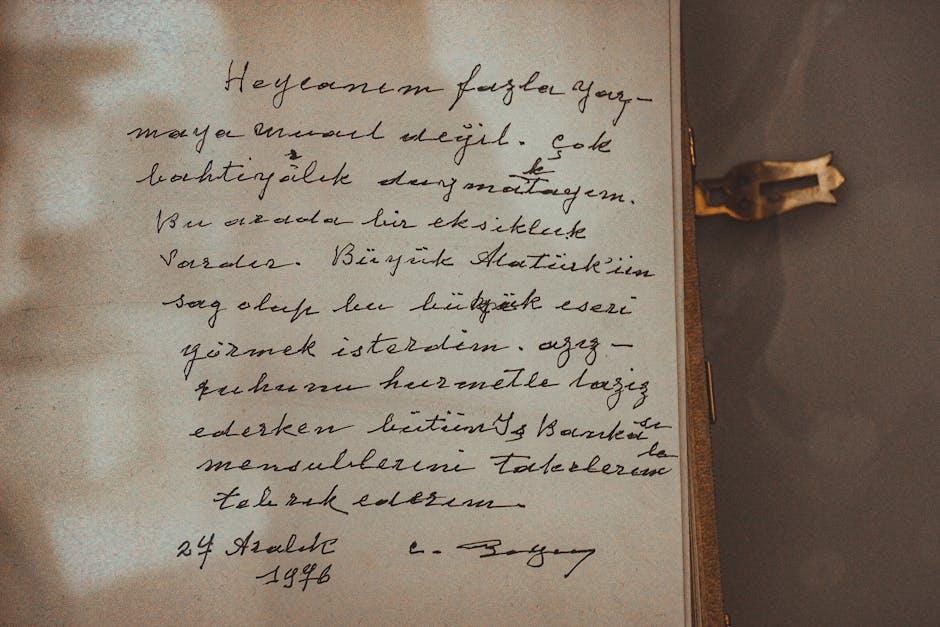 Heycanım fazla yaz-
maya muait değil. Çok
bahtiyârlık duymaktayım.
Bu arada bir eksikluk
vardır. Büyük Atatürk'ün
sag olup bu büyük eseri
görmek isterdim. aziz-
ruhunu hurmetle taziz
ederken bütün İş Bankası
mensublerini takdirlerimle
tebrik ederim.
27 Aralık C. Bayar
1976